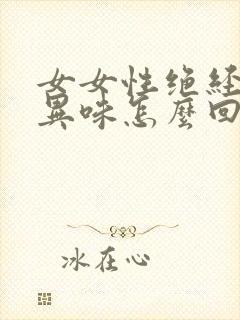 女女性绝经
異味怎麽回
冰在心